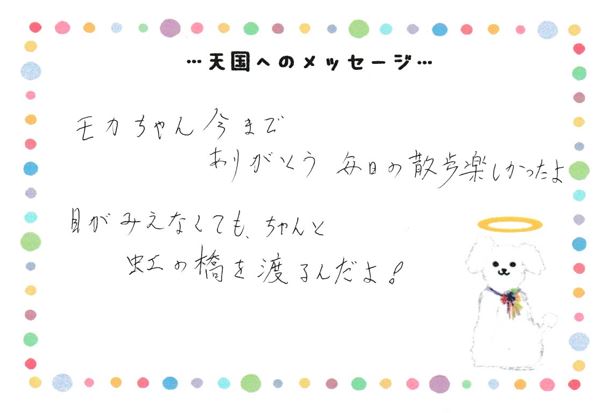 …天国へのメッセージ…
モカちゃん今まで
ありがとう 毎日の散歩楽しかったよ
目がみえなくても、ちゃんと
虹の橋を渡るんだよ!